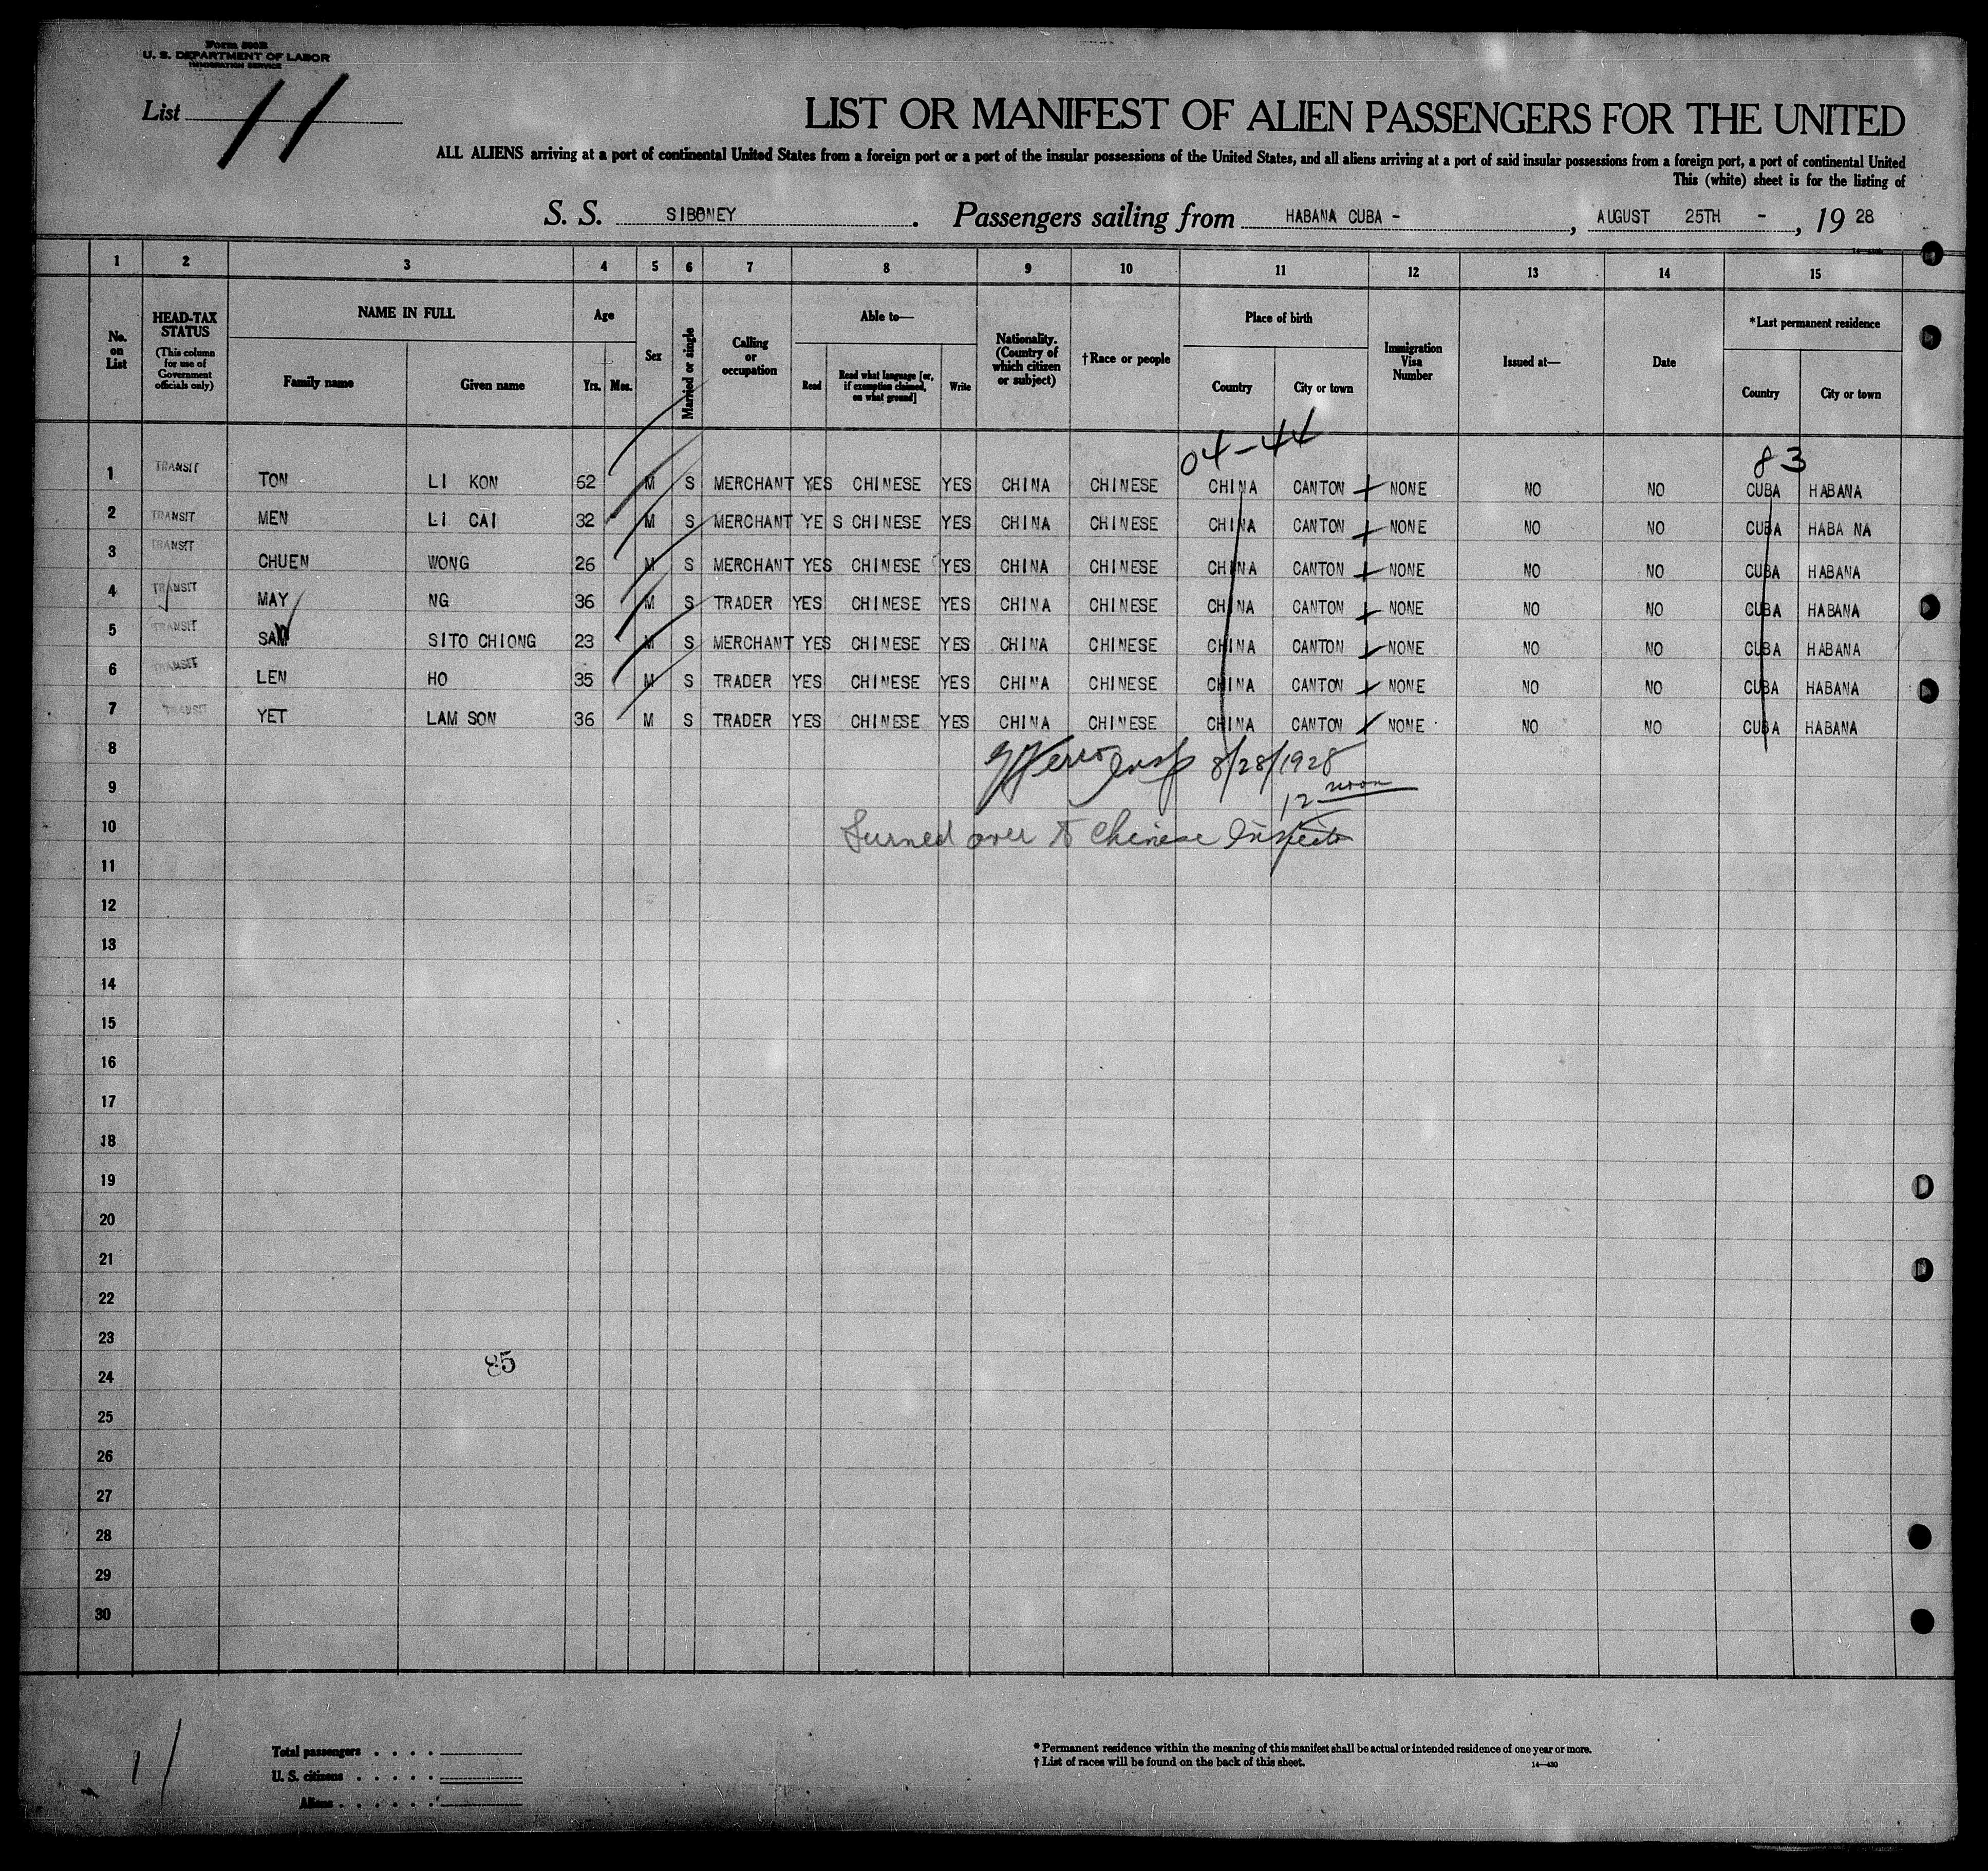 Form 500B
U. S. DEPARTMENT OF LABOR
IMMIGRATION SERVICE
List 11
LIST OR MANIFEST OF ALIEN PASSENGERS FOR THE UNITED
ALL ALIENS arriving at a port of continental United States from a foreign port or a port of the insular possessions of the United States, and all aliens arriving at a port of said insular possessions from a foreign port, a port of continental United
This (white) sheet is for the listing of
S. S. SIBONEY. Passengers sailing from HABANA CUBA -, AUGUST 25TH -, 19 28
1 2 3 4 5 6 7 8 9 10 11 12 13 14 15
No. on List
HEAD-TAX STATUS (This column for use of Government officials only)
NAME IN FULL
Family name Given name
Age
Yrs. Mos.
Sex
Married or single
Calling or occupation
Able to—
Read
Read what language [or, if exemption claimed, on what ground]
Write
Nationality. (Country of which citizen or subject)
†Race or people
Place of birth
Country City or town
Immigration Visa Number
Issued at—
Date
*Last permanent residence
Country City or town
04-44 83
1 TRANSIT TON LI KON 52 M S MERCHANT YES CHINESE YES CHINA CHINESE CHINA CANTON NONE NO NO CUBA HABANA
2 TRANSIT MEN LI CAI 32 M S MERCHANT YE S CHINESE YES CHINA CHINESE CHINA CANTON NONE NO NO CUBA HABA NA
3 TRANSIT CHUEN WONG 26 M S MERCHANT YES CHINESE YES CHINA CHINESE CHINA CANTON NONE NO NO CUBA HABANA
4 TRANSIT MAY NG 36 M S TRADER YES CHINESE YES CHINA CHINESE CHINA CANTON NONE NO NO CUBA HABANA
5 TRANSIT SAM SITO CHIONG 23 M S MERCHANT YES CHINESE YES CHINA CHINESE CHINA CANTON NONE NO NO CUBA HABANA
6 TRANSIT LEN HO 35 M S TRADER YES CHINESE YES CHINA CHINESE CHINA CANTON NONE NO NO CUBA HABANA
7 TRANSIT YET LAM SON 36 M S TRADER YES CHINESE YES CHINA CHINESE CHINA CANTON NONE NO NO CUBA HABANA
8 Insp 8/28/1928
9 12 noon
10 Turned over to Chinese Inspector
11
12
13
14
15
16
17
18
19
20
21
22
23
85
24
25
26
27
28
29
30
11
Total passengers . . . .
U. S. citizens . . . . .
Aliens . . . . . .
* Permanent residence within the meaning of this manifest shall be actual or intended residence of one year or more.
† List of races will be found on the back of this sheet.
14—430